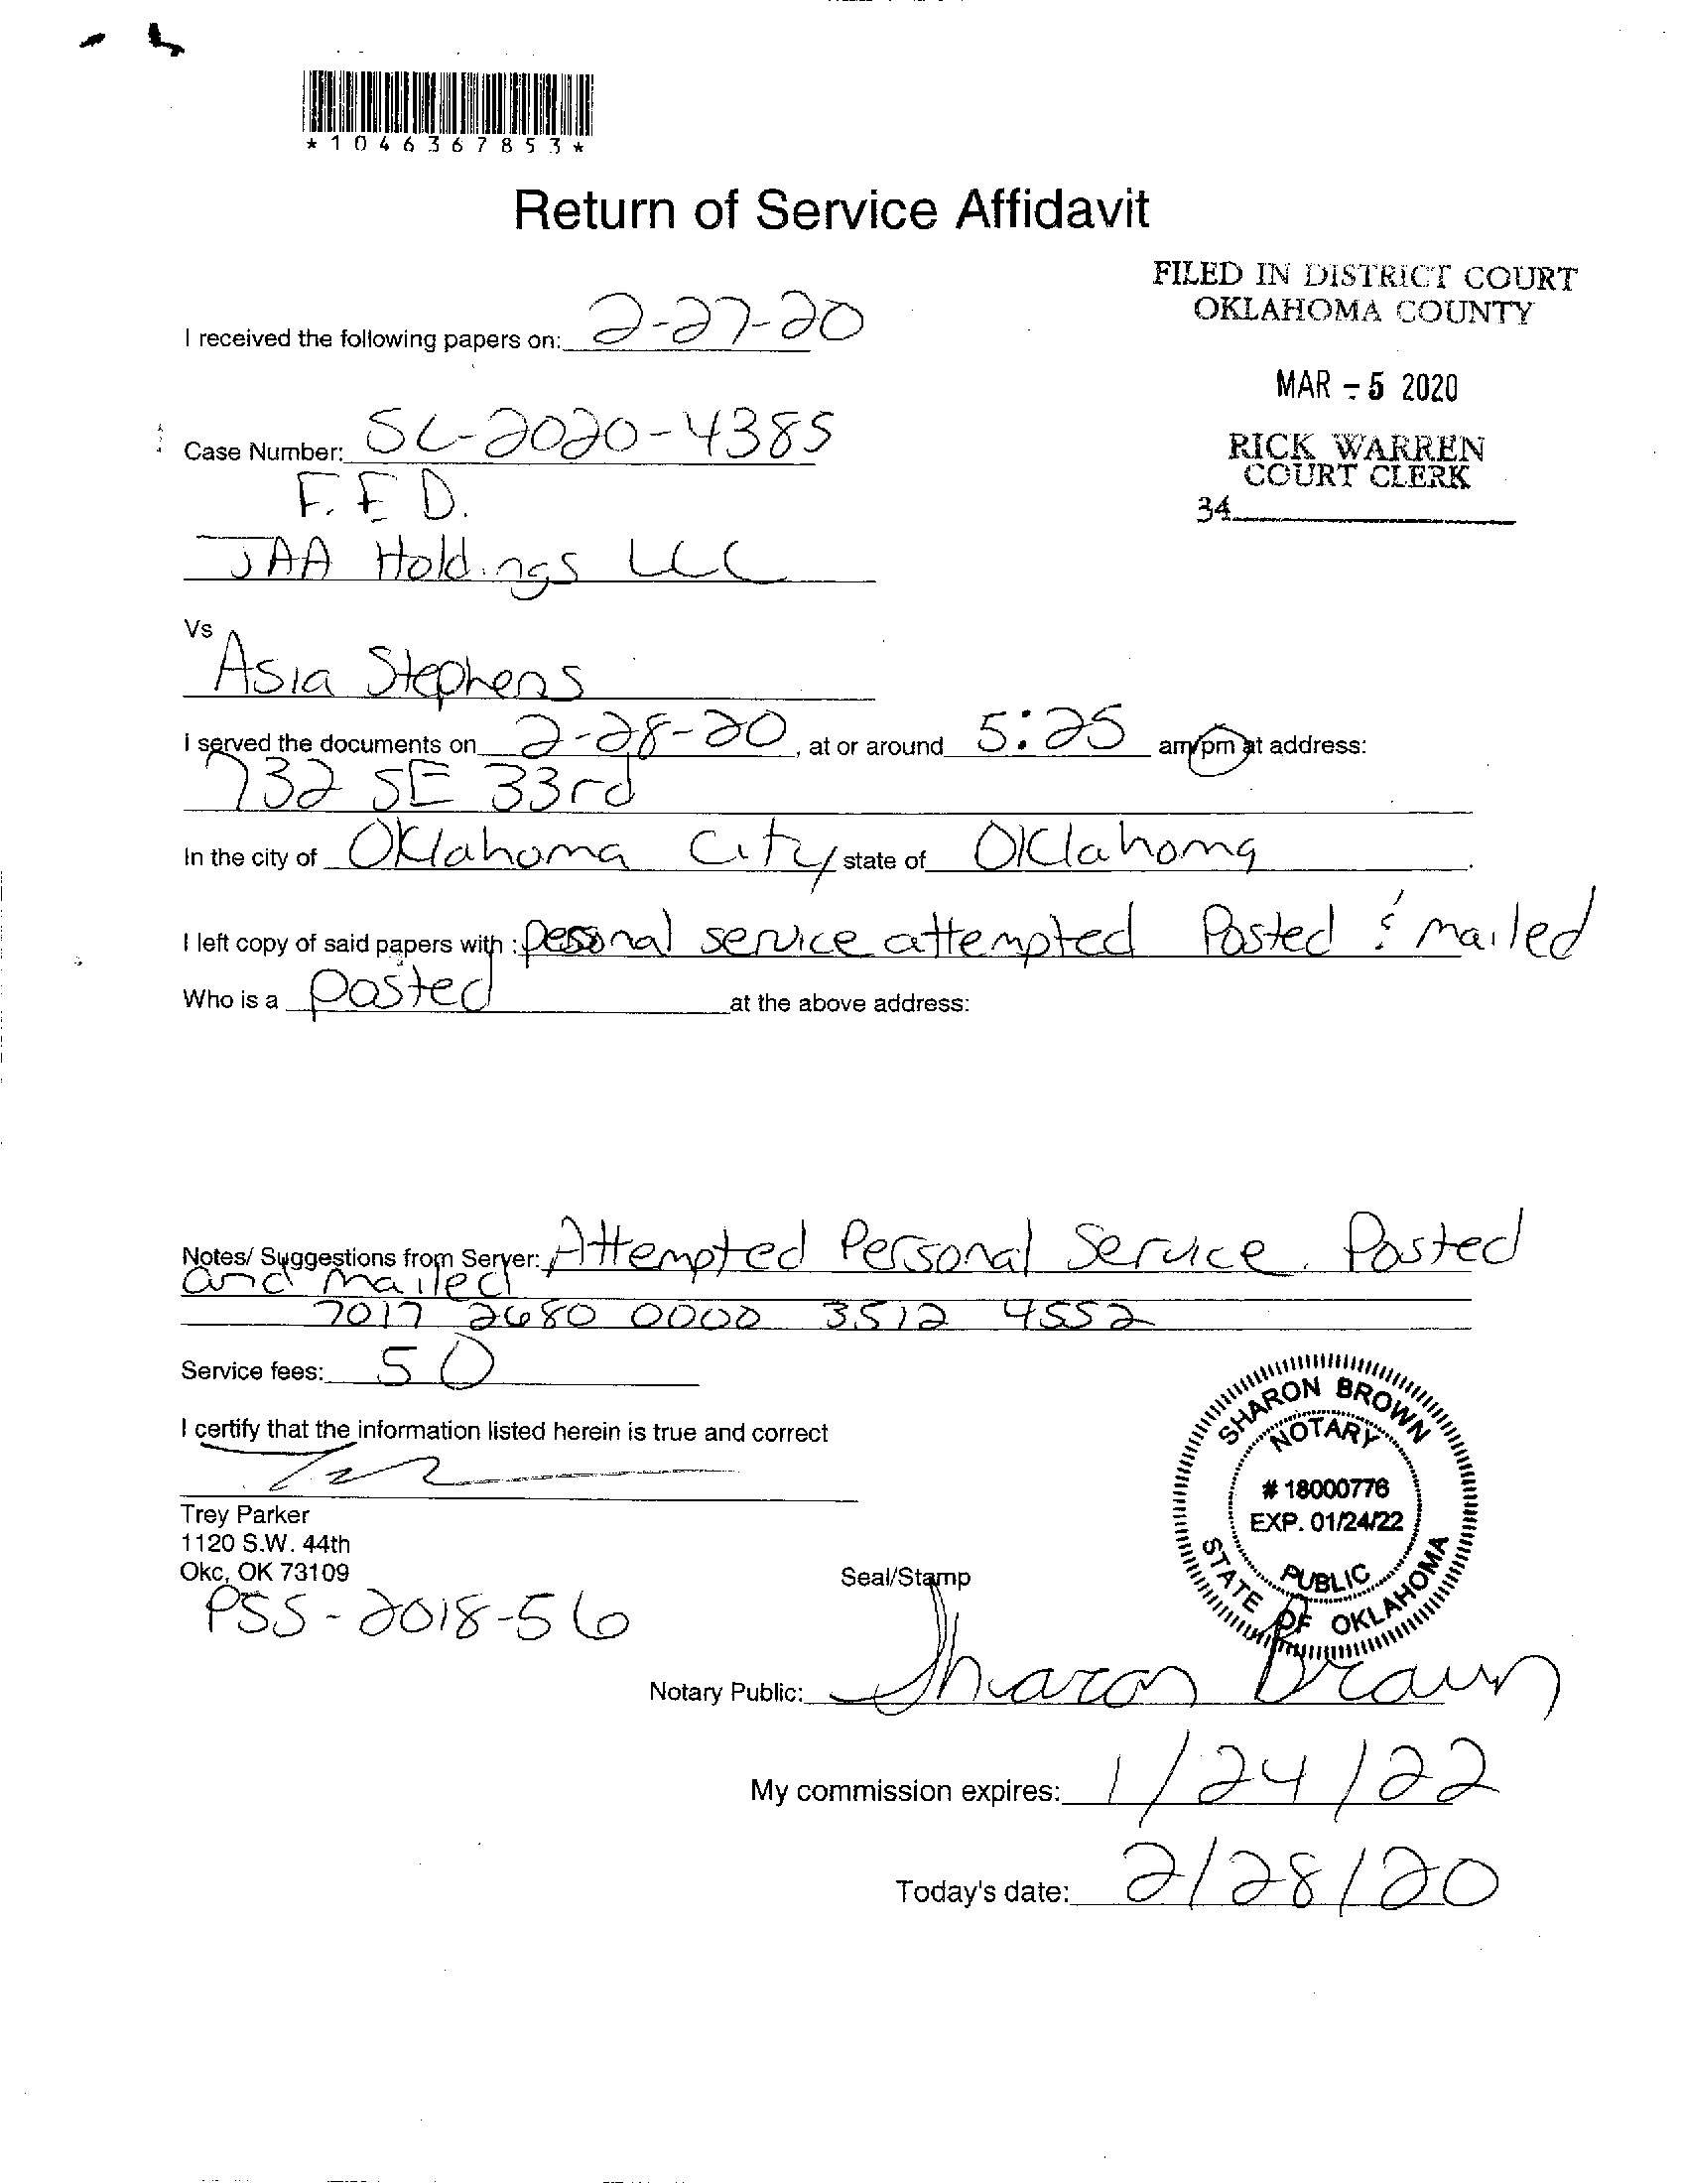 *1046367853*
Return of Service Affidavit
FILED IN DISTRICT COURT
OKLAHOMA COUNTY
I received the following papers on: 2-27-20
MAR - 5 2020
Case Number: SC-2020-4385
RICK WARREN
COURT CLERK
F. E D.
34
JAA Holdings LLC
Vs
Asia Stephens
I served the documents on 2-28-20, at or around 5:25 am/pm at address:
732 SE 33rd
In the city of Oklahoma City state of Oklahoma.
I left copy of said papers with : personal service attempted Posted & mailed
Who is a posted at the above address:
Notes/ Suggestions from Server: Attempted Personal Service. Posted
and mailed
7017 2680 0000 3512 4552
Service fees: 50
I certify that the information listed herein is true and correct
Trey Parker
1120 S.W. 44th
Okc, OK 73109
PSS-2018-56
SHARON BROWN
NOTARY
# 18000776
EXP. 01/24/22
PUBLIC
STATE OF OKLAHOMA
Seal/Stamp
Notary Public: Sharon Brown
My commission expires: 1/24/22
Today's date: 2/28/20